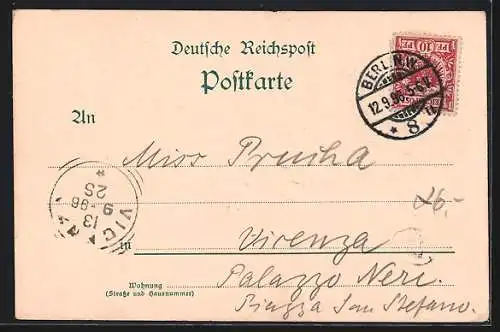 Deutsche Reichspost
Postkarte
10 PF
BERLIN, N.W.
12.9.96. 5-6 N.
* 8
An
Miss Prucha
26.-
VIC
13
9 96
2S
in
Vicenza
Palazzo Neri.
Piazza San Stefano.
Wohnung
(Straße und Hausnummer)